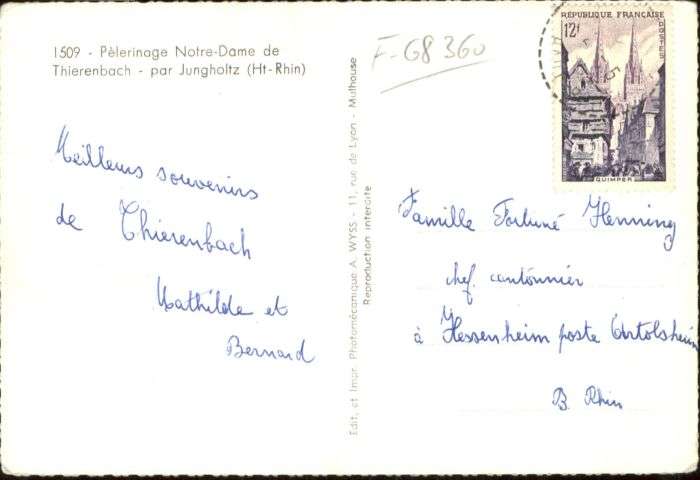 1509 - Pèlerinage Notre-Dame de
Thierenbach - par Jungholtz (Ht-Rhin)
F-68360
Meilleurs souvenirs
de Thierenbach
Mathilde et
Bernard
Edit. et Impr. Photomécanique A. WYSS - 11, rue de Lyon - Mulhouse
Reproduction interdite
RÉPUBLIQUE FRANÇAISE
12f
POSTES
QUIMPER
Famille Fortuné Henning
chef cantonnier
à Hessenheim poste Artolsheim
B. Rhin